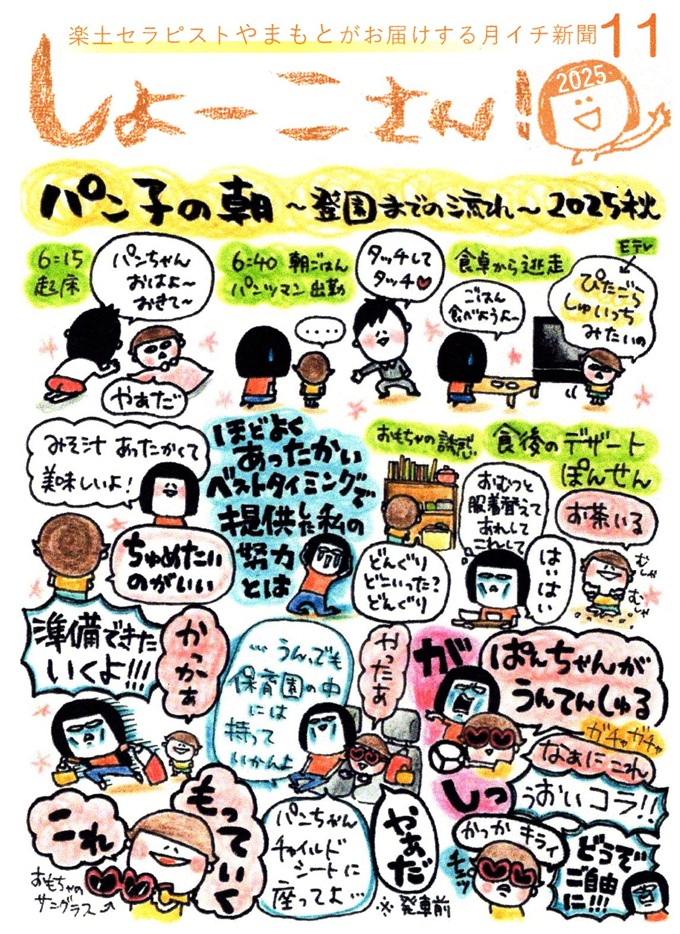 楽土セラピストやまもとがお届けする月イチ新聞11
しょーこさん!
2025
パン子の朝 ～登園までの流れ～ 2025秋
6:15
起床
パンちゃん
おはよ～
おきて～
やぁだ
6:40 朝ごはん
パンツマン出勤
タッチして
タッチ♥
……
食卓から逃走
Eテレ
ごはん
食べようよ～
ぴたごーら
しゅいっち
みたいの
みそ汁 あったかくて
美味しいよ!
ちゅめたい
のがいい
ほどよく
あったかい
ベストタイミングで
提供した私の
努力
とは
おもちゃの誘惑
どんぐり
どこいった?
どんぐり
食後のデザート
ぽんせん
おむつと
服着替えて
あれして
これして
お茶いる
はいはい
むしゃ
むしゃ
準備できた
いくよ!!!
かっかぁ
これ
もっていく
おもちゃの
サングラス
…うん、でも
保育園の中
には
持って
いかんよ
やったぁ
パンちゃん
チャイルド
シートに
座ってよ…
やぁだ
※発車前
がしっ
ぱんちゃんが
うんてんしゅる
ガチャガチャ
なぁにこれ
うおいコラ!!
かっかキライ
どうぞ
ご自由
に!!!